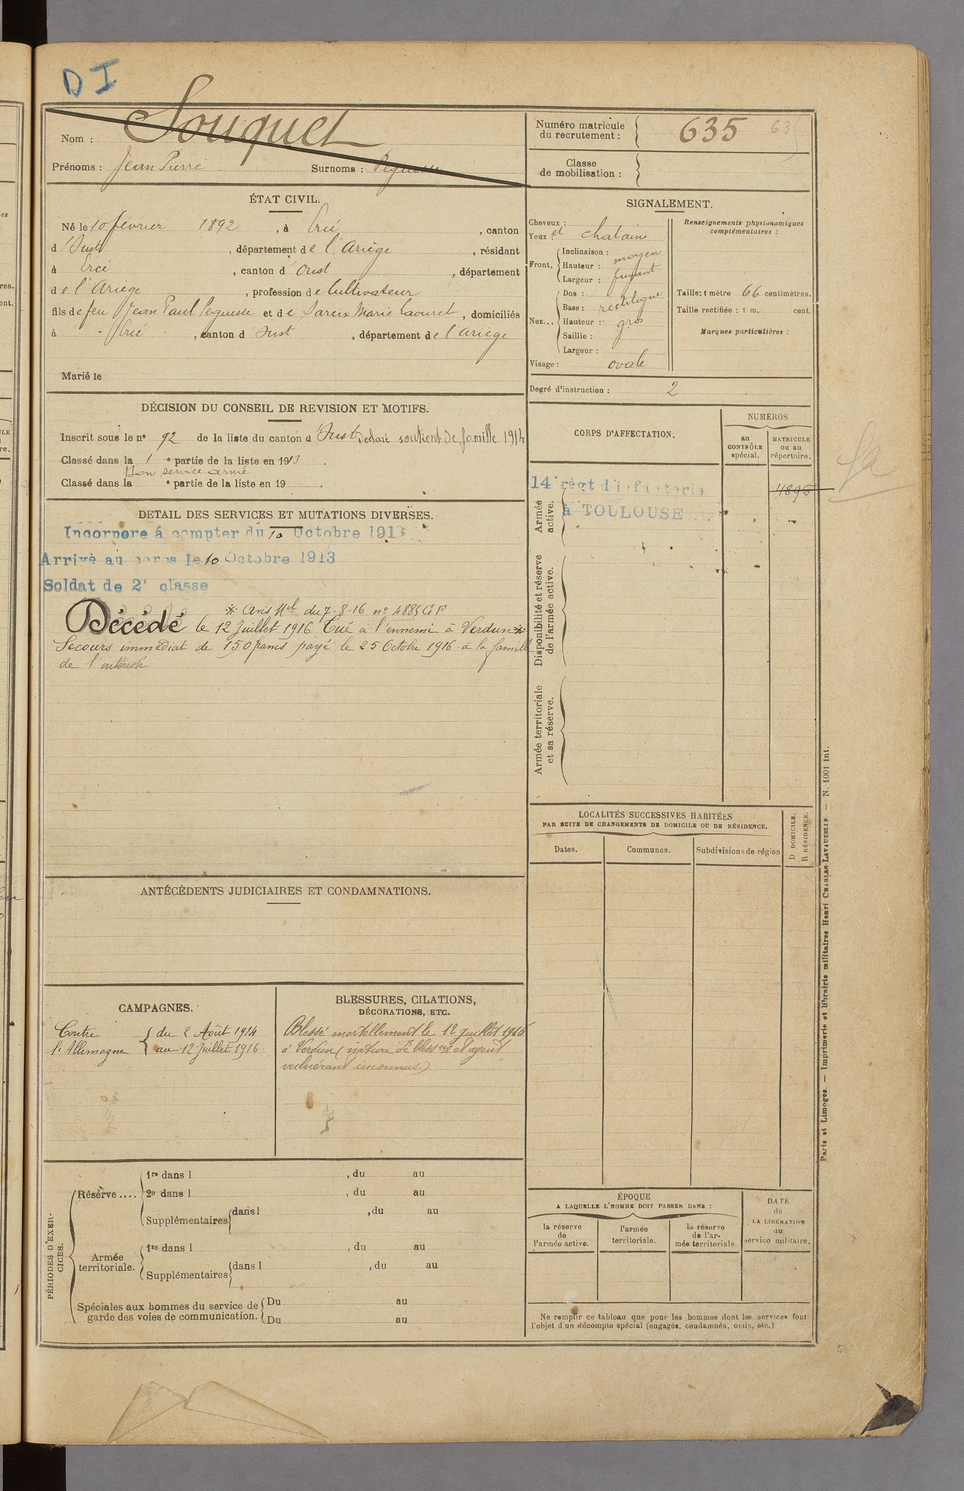 DI
Nom : Souquet
Prénoms : Jean Pierre Surnoms :
Numéro matricule du recrutement : 635
Classe de mobilisation :
ÉTAT CIVIL.
Né le 10 février 1892, à Ercé, canton
d'Oust, département de l'Ariège, résidant
à Ercé, canton d'Oust, département
de l'Ariège, profession de Cultivateur
fils de feu Jean Paul et de Marie, domiciliés
à Ercé, canton d'Oust, département de l'Ariège
Marié le
SIGNALEMENT.
Cheveux :
Yeux : et chatain
Front. Inclinaison : moyen
Hauteur : fuyant
Largeur :
Nez... Dos : rectiligne
Base :
Hauteur : gros
Saillie :
Largeur :
Visage : ovale
Renseignements physionomiques complémentaires :
Taille : 1 mètre 66 centimètres.
Taille rectifiée : 1 m. cent.
Marques particulières :
Degré d'instruction : 2
DÉCISION DU CONSEIL DE REVISION ET MOTIFS.
Inscrit sous le nº 92 de la liste du canton d'Oust soutien de famille 1914
Classé dans la 1e partie de la liste en 1913
Bon service armé
Classé dans la e partie de la liste en 19
DETAIL DES SERVICES ET MUTATIONS DIVERSES.
Incorporé à compter du 10 Octobre 1913
Arrivé au corps le 10 Octobre 1913
Soldat de 2e classe
* Avis Mel du 7-8-16 nº
Décédé le 12 Juillet 1916 Tué à l'ennemi à Verdun *
Secours immédiat de 150 francs payé le 25 Octobre 1916 à la famille
de l'intéressé
CORPS D'AFFECTATION.
NUMÉROS
AU CONTRÔLE spécial.
MATRICULE ou au répertoire.
Armée active.
14e régt d'infanterie
à TOULOUSE
Disponibilité et réserve de l'armée active.
Armée territoriale et sa réserve.
LOCALITÉS SUCCESSIVES HABITÉES
PAR SUITE DE CHANGEMENTS DE DOMICILE OU DE RÉSIDENCE.
Dates. Communes. Subdivisions de région
D DOMICILE.
R RÉSIDENCE.
ANTÉCÉDENTS JUDICIAIRES ET CONDAMNATIONS.
CAMPAGNES.
Contre l'Allemagne
du 2 Août 1914
au 12 Juillet 1916
BLESSURES, CITATIONS,
DÉCORATIONS, ETC.
Blessé mortellement le 12 Juillet 1916
à Verdun (nature de blessure et agent
vulnérant inconnus)
PÉRIODES D'EXERCICES.
Réserve....
1re dans l , du au
2e dans l , du au
Supplémentaires dans l , du au
Armée territoriale.
1re dans l , du au
Supplémentaires dans l , du au
Spéciales aux hommes du service de garde des voies de communication.
Du au
Du au
ÉPOQUE
A LAQUELLE L'HOMME DOIT PASSER DANS :
la réserve de l'armée active.
l'armée territoriale.
la réserve de l'armée territoriale.
DATE de LA LIBÉRATION du service militaire.
Ne remplir ce tableau que pour les hommes dont les services font
l'objet d'un décompte spécial (engagés, condamnés, omis, etc.)
Paris et Limoges. — Imprimerie et librairie militaires Henri CHARLES-LAVAUZELLE. — N. 1001 int.